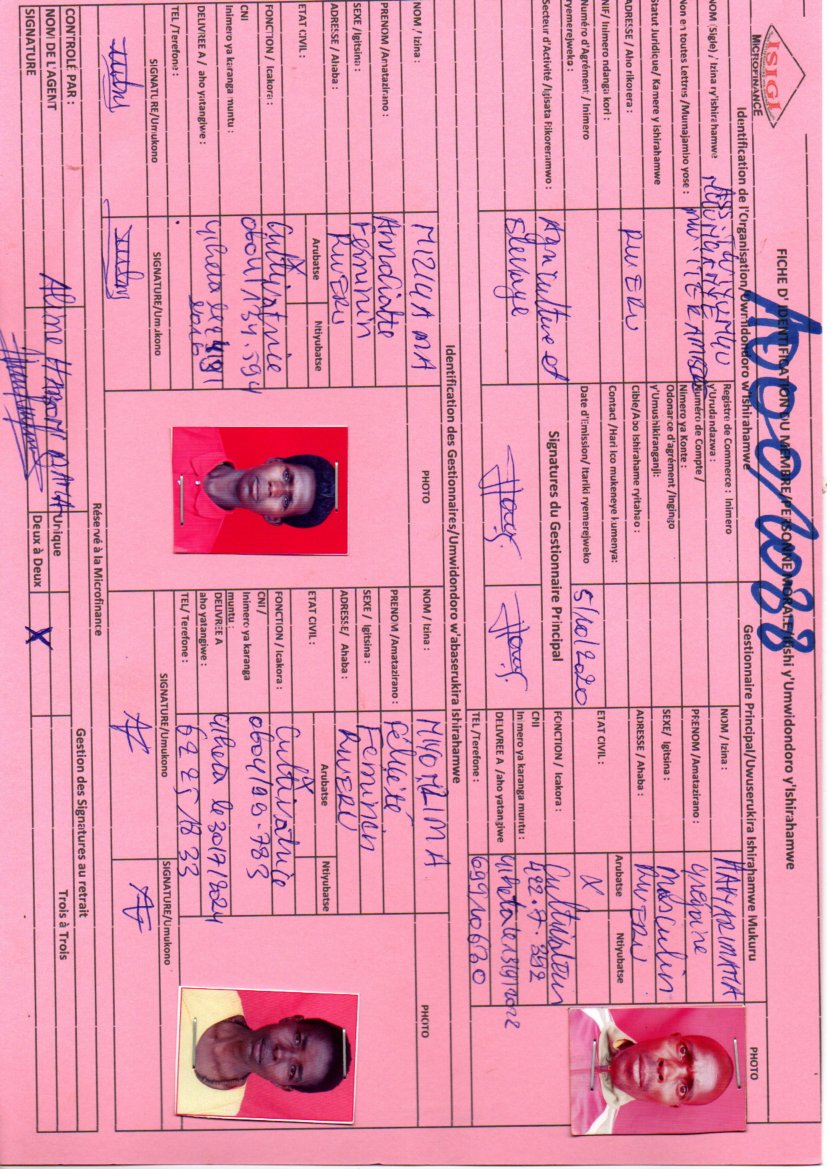 ISIGI
MICROFINANCE
FICHE D' IDENTIFICATION DU MEMBRE/PERSONNE MORALE/
y'Umwidondoro y'Ishirahamwe
Identification de l'Organisation/Umwidondoro w'Ishirahamwe
Gestionnaire Principal/Uwuserukira Ishirahamwe Mukuru
PHOTO
NOM (Sigle) / Izina ry'ishirahamwe
Non en toutes Lettres /Mumajambo yose :
Statut Juridique/ Kamere y ishirahamwe
ADRESSE / Aho rikorera :
RWERU
NIF/ Inimero ndanga kori :
Numéro d'Agrément / Inimero
ryemerejweko :
Secteur d'Activité /Igisata Rikoreramwo :
Agriculture et
Elevage
Registre de Commerce : Inimero
y'Urudandazwa :
Numéro de Compte /
Nimero ya Konte :
Odonance d'agrément /Ingingo
y'Umushikiranganji:
Cible/Abo Ishirahame ryitaho :
Contact /Hari ico mukeneye kumenya:
Date d'Emission/ Itariki ryemerejweko
5/10/2020
Signatures du Gestionnaire Principal
NOM / Izina :
HAKYARIMANA
PRENOM /Amatazirano :
SEXE/ Igitsina :
Masculin
ADRESSE / Ahaba :
RWERU
ETAT CIVIL :
Arubatse
Ntiyubatse
X
FONCTION / Icakora :
Cultivateur
CNI
Inimero ya karanga muntu :
422.7.392
DELIVREE A /aho yatangiwe
Giheta le 13/9/2022
TEL /Terefone :
69910630
Identification des Gestionnaires/Umwidondoro w'abaserukira Ishirahamwe
NOM / Izina :
PRENOM /Amatazirano :
SEXE /Igitsina :
Feminin
ADRESSE / Ahaba :
RWERU
ETAT CIVIL :
Arubatse
Ntiyubatse
X
FONCTION / Icakora :
Cultivatrice
CNI
Inimero ya karanga muntu :
0604/134.594
DELIVREE A / aho yatangiwe :
TEL /Terefone :
SIGNATURE/Umukono
SIGNATURE/Umukono
PHOTO
NOM / Izina :
MIYOMRIMA
PRENOM /Amatazirano :
Félicité
SEXE / Igitsina :
Feminin
ADRESSE/ Ahaba :
RWERU
ETAT CIVIL :
Arubatse
Ntiyubatse
X
FONCTION / Icakora :
Cultivatrice
CNI /
Inimero ya karanga
muntu :
0604/190.783
DELIVREE A
aho yatangiwe :
Giheta le 30/7/2024
TEL/ Terefone :
62251833
SIGNATURE/Umukono
SIGNATURE/Umukono
PHOTO
Réservé à la Microfinance
CONTROLÉ PAR :
NOM DE L'AGENT
Aline
SIGNATURE
Gestion des Signatures au retrait
Unique
Deux à Deux
X
Trois à Trois